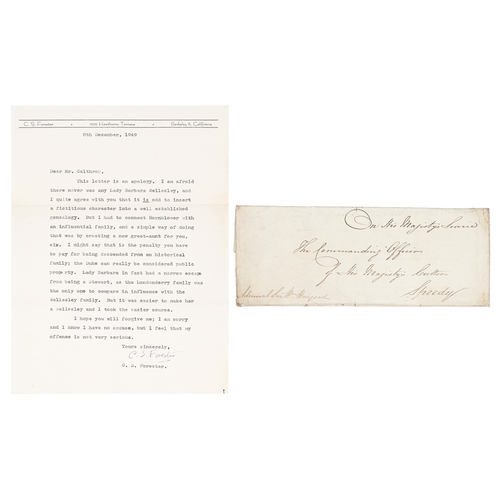 C. S. Forester • Hawthorne Terrace • Berkeley 8, California
8th December, 1949
Dear Mr. Calthrop,
This letter is an apology. I am afraid
there never was any Lady Barbara Wellesley, and
I quite agree with you that it is odd to insert
a fictitious character into a well established
genealogy. But I had to connect Hornblower with
an influential family, and a simple way of doing
that was by creating a new great-aunt for you,
six. I might say that is the penalty you have
to pay for being descended from an historical
family; the Duke can really be considered public
property. Lady Barbara in fact had a narrow escape
from being a Stewart, as the Londonderry family was
the only one to compare in influence with the
Wellesley family. But it was easier to make her
a Wellesley and I took the easier course.
I hope you will forgive me; I am sorry
and I know I have no excuse, but I feel that my
offense is not very serious.
Yours sincerely,
C. S. Forester
C. S. Forester.
On His Majesty's Service
The Commanding Officer
Of His Majesty's Cutter
Speedy